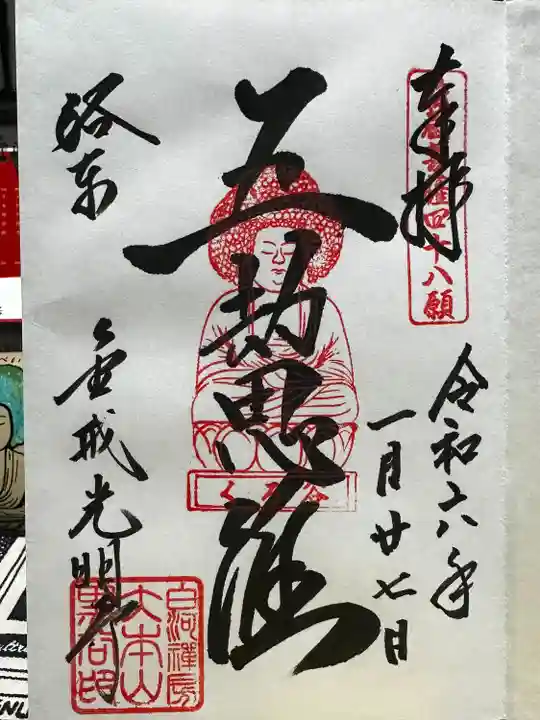 奉拝
四十八願
令和六年
一月廿七日
五劫思惟
くろ谷
洛東
金戒光明寺
大本山